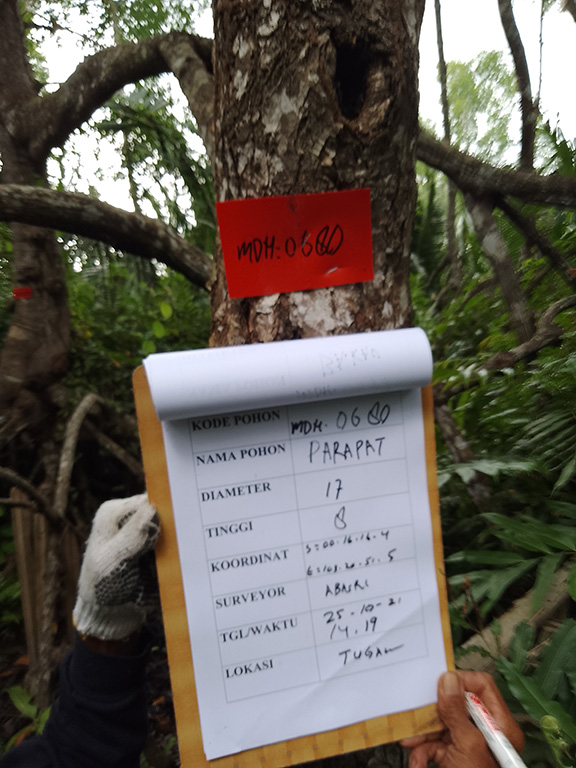 MDH-0680
KODE POHON MDH-0680
NAMA POHON PARAPAT
DIAMETER 17
TINGGI 8
KOORDINAT S=00.16.16.4
E=103.20.51.5
SURVEYOR ABASRI
TGL/WAKTU 25-10-21
14.19
LOKASI TUGAW